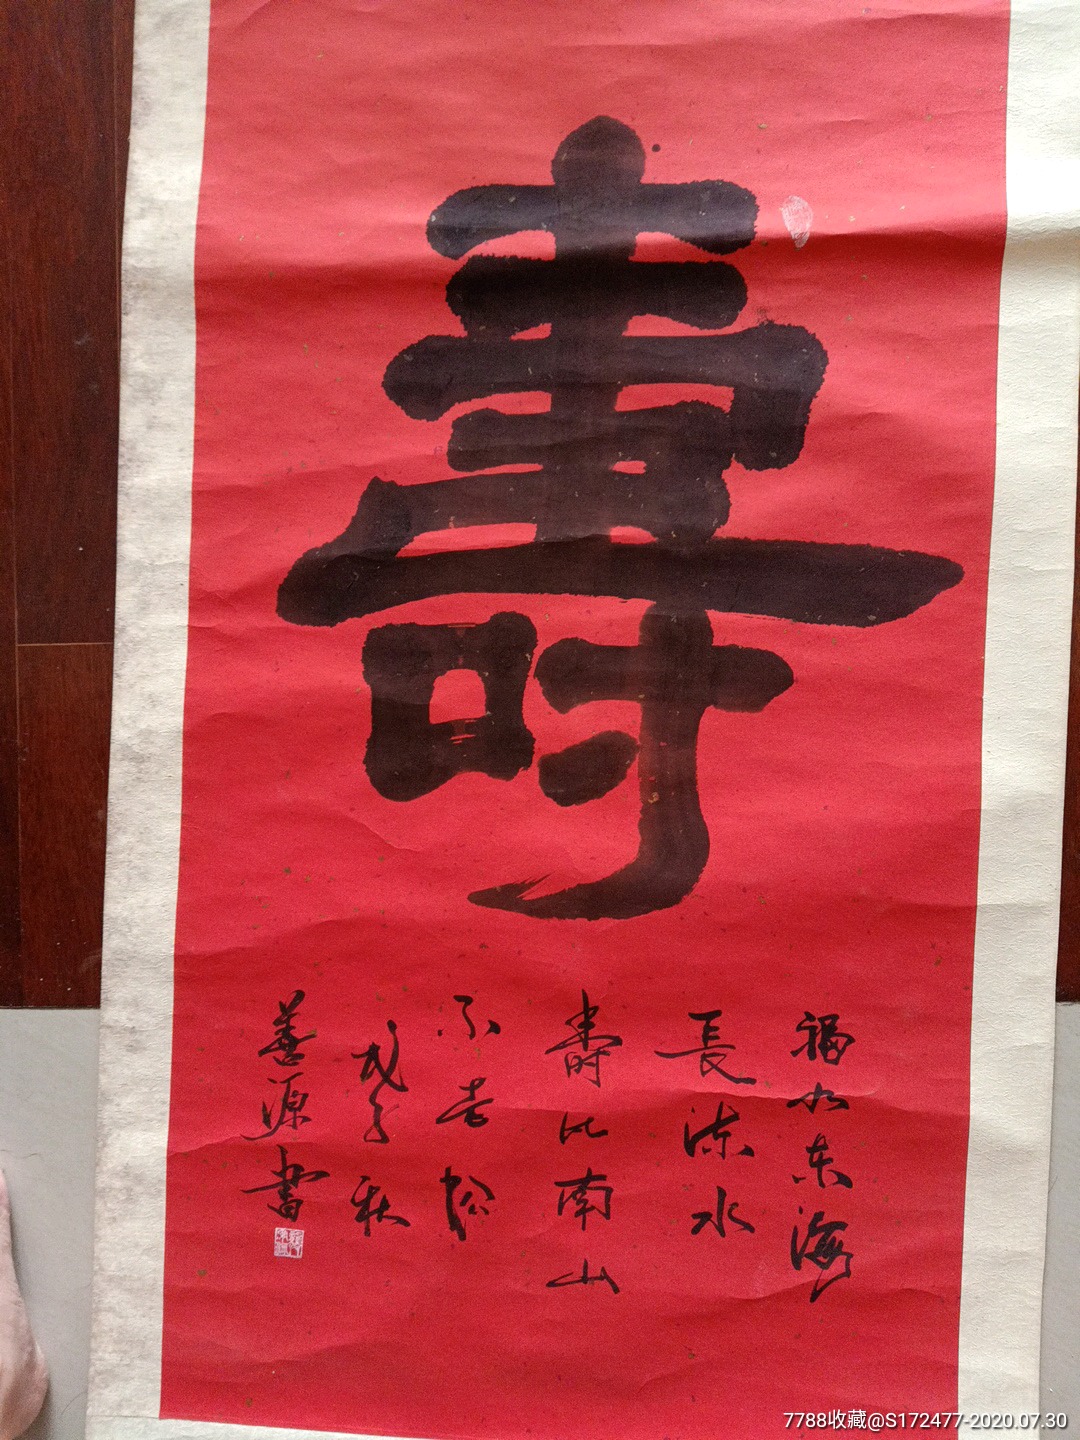 壽
福如东海
長流水
壽比南山
不老松
戊子秋
善源書
7788收藏@S172477-2020.07.30